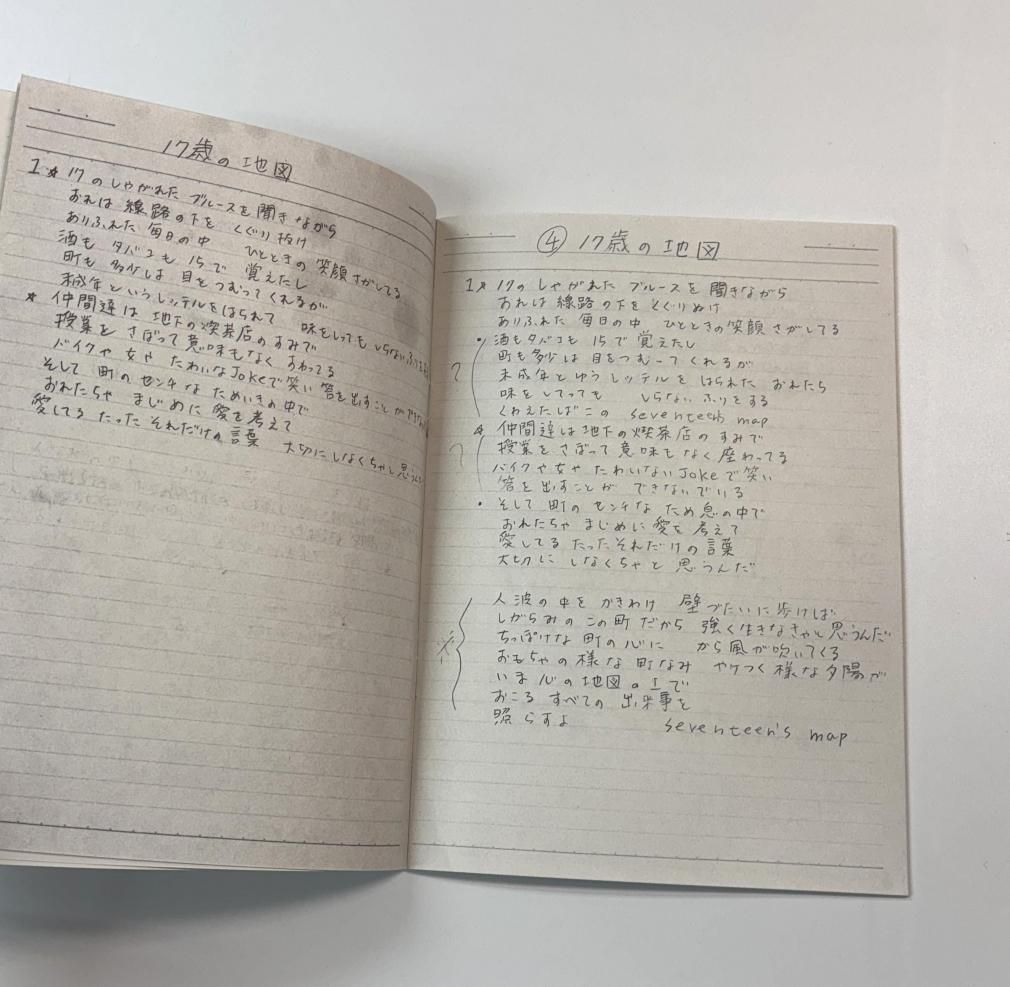 17歳の地図
1☆ 17のしゃがれた ブルースを聞きながら
おれは線路の下を くぐり抜け
ありふれた毎日の中 ひとときの笑顔さがしてる
酒も タバコも 15で 覚えたし
町も 多少は 目をつむってくれるが
年というレッテルをはられて 味をしっても しらないふり
★ 仲間達は 地下の喫茶店のすみで
授業を さぼって意味もなく おわってる
バイクや女や たわいなJokeで笑い 答を出すことができない
そして 町の センチな ためいきの中で
おれたちゃ まじめに 愛を考えて
愛してる たった それだけの言葉 大切にしなくちゃと思うんだ
④ 17歳の地図
1☆ 17の しゃがれた ブルースを 聞きながら
おれは線路の下を くぐりぬけ
ありふれた 毎日の中 ひとときの笑顔 さがしてる
・酒もタバコも 15で 覚えたし
町も多少は 目をつむってくれるが
?
未成年とゆうレッテルを はられた おれたち
味を しってても しらない ふりをする
くわえたばこの seventeen's map
☆ 仲間達は地下の喫茶店のすみで
授業をさぼって意味もなく座わってる
?
バイクや女や たわいないJokeで笑い
答を出すことが できないでいる
・そして 町の センチな ため息の中で
おれたちゃ まじめに愛を 考えて
愛してる たったそれだけの言葉
大切に しなくちゃと 思うんだ
人波の中を かきわけ 壁づたいに歩けば
しがらみのこの町だから 強く生きなきゃと思うんだ
ちっぽけな 町の心に から風が吹いてくる
※
おもちゃの様な 町なみ やけつく様な夕陽が
いま心の地図の上で
おこる すべての 出来事を
照らすよ seventeen's map